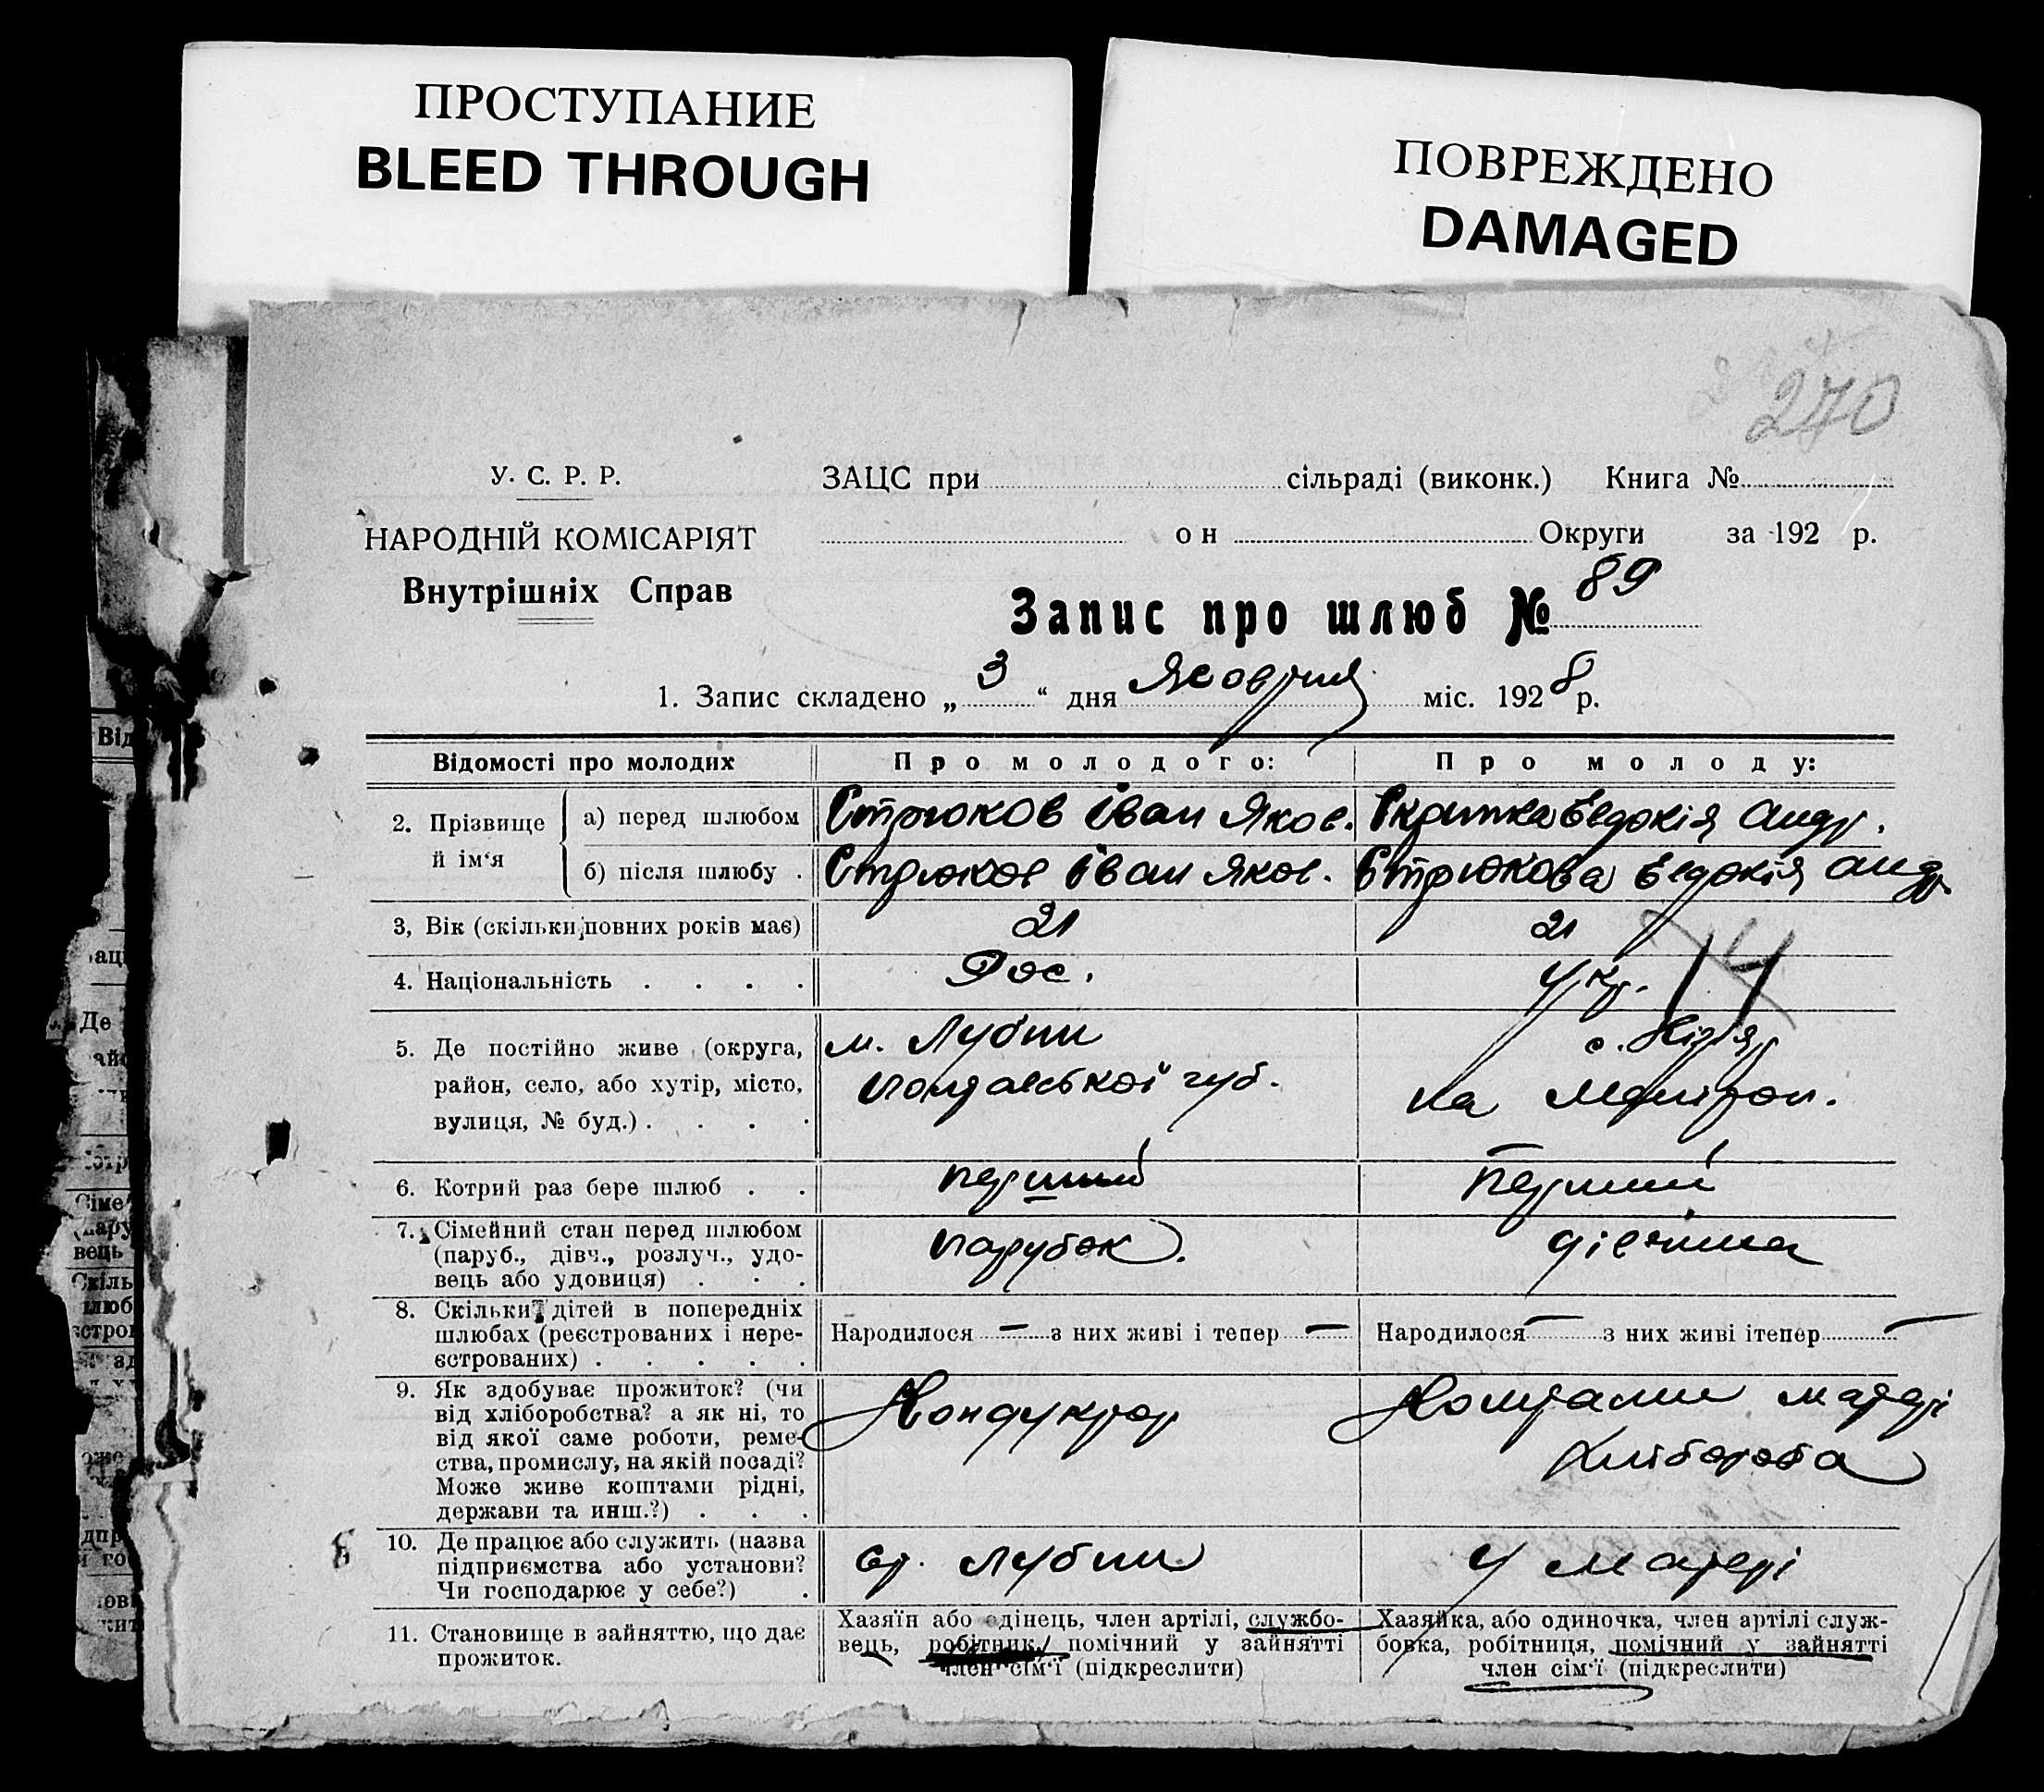 ПРОСТУПАНИЕ
BLEED THROUGH
ПОВРЕЖДЕНО
DAMAGED
270
У. С. Р. Р.
НАРОДНІЙ КОМІСАРІЯТ
Внутрішніх Справ
ЗАЦС при сільраді (виконк.) Книга №
он Округи за 192 р.
Запис про шлюб № 89
1. Запис складено „ 3 “ дня Жовтня міс. 1928 р.
Відомості про молодих
Про молодого:
Про молоду:
2. Прізвище й ім‘я
а) перед шлюбом
Стрюков Іван Яков.
Евдокія Андр.
б) після шлюбу .
Стрюков Іван Яков.
Стрюкова Евдокія Андр
3, Вік (скільки повних років має)
21
21
4. Національність . . . .
Рос.
Укр.
14
5. Де постійно живе (округа,
район, село, або хутір, місто,
вулиця, № буд.) . . . .
м. Лубни
Полтавської губ.
с.
на
6. Котрий раз бере шлюб . .
перший
перший
7. Сімейний стан перед шлюбом
(паруб., дівч., розлуч., удо-
вець або удовиця) . . .
парубок.
дівчина
8. Скільки дітей в попередніх
шлюбах (реєстрованих і нере-
єстрованих) . . . . .
Народилося — з них живі і тепер —
Народилося — з них живі ітепер —
9. Як здобуває прожиток? (чи
від хліборобства? а як ні, то
від якої саме роботи, реме-
ства, промислу, на якій посаді?
Може живе коштами рідні,
держави та инш.?) . . .
Кондуктор
Коштами матері
хлібороба
10. Де працює або служить (назва
підприємства або установи?
Чи господарює у себе?) .
ст. Лубни
У матері
11. Становище в зайняттю, що дає
прожиток.
Хазяїн або одінець, член артілі, службо-
вець, робітник, помічний у зайнятті
член сім‘ї (підкреслити)
Хазяйка, або одиночка, член артілі служ-
бовка, робітниця, помічний у зайнятті
член сім‘ї (підкреслити)